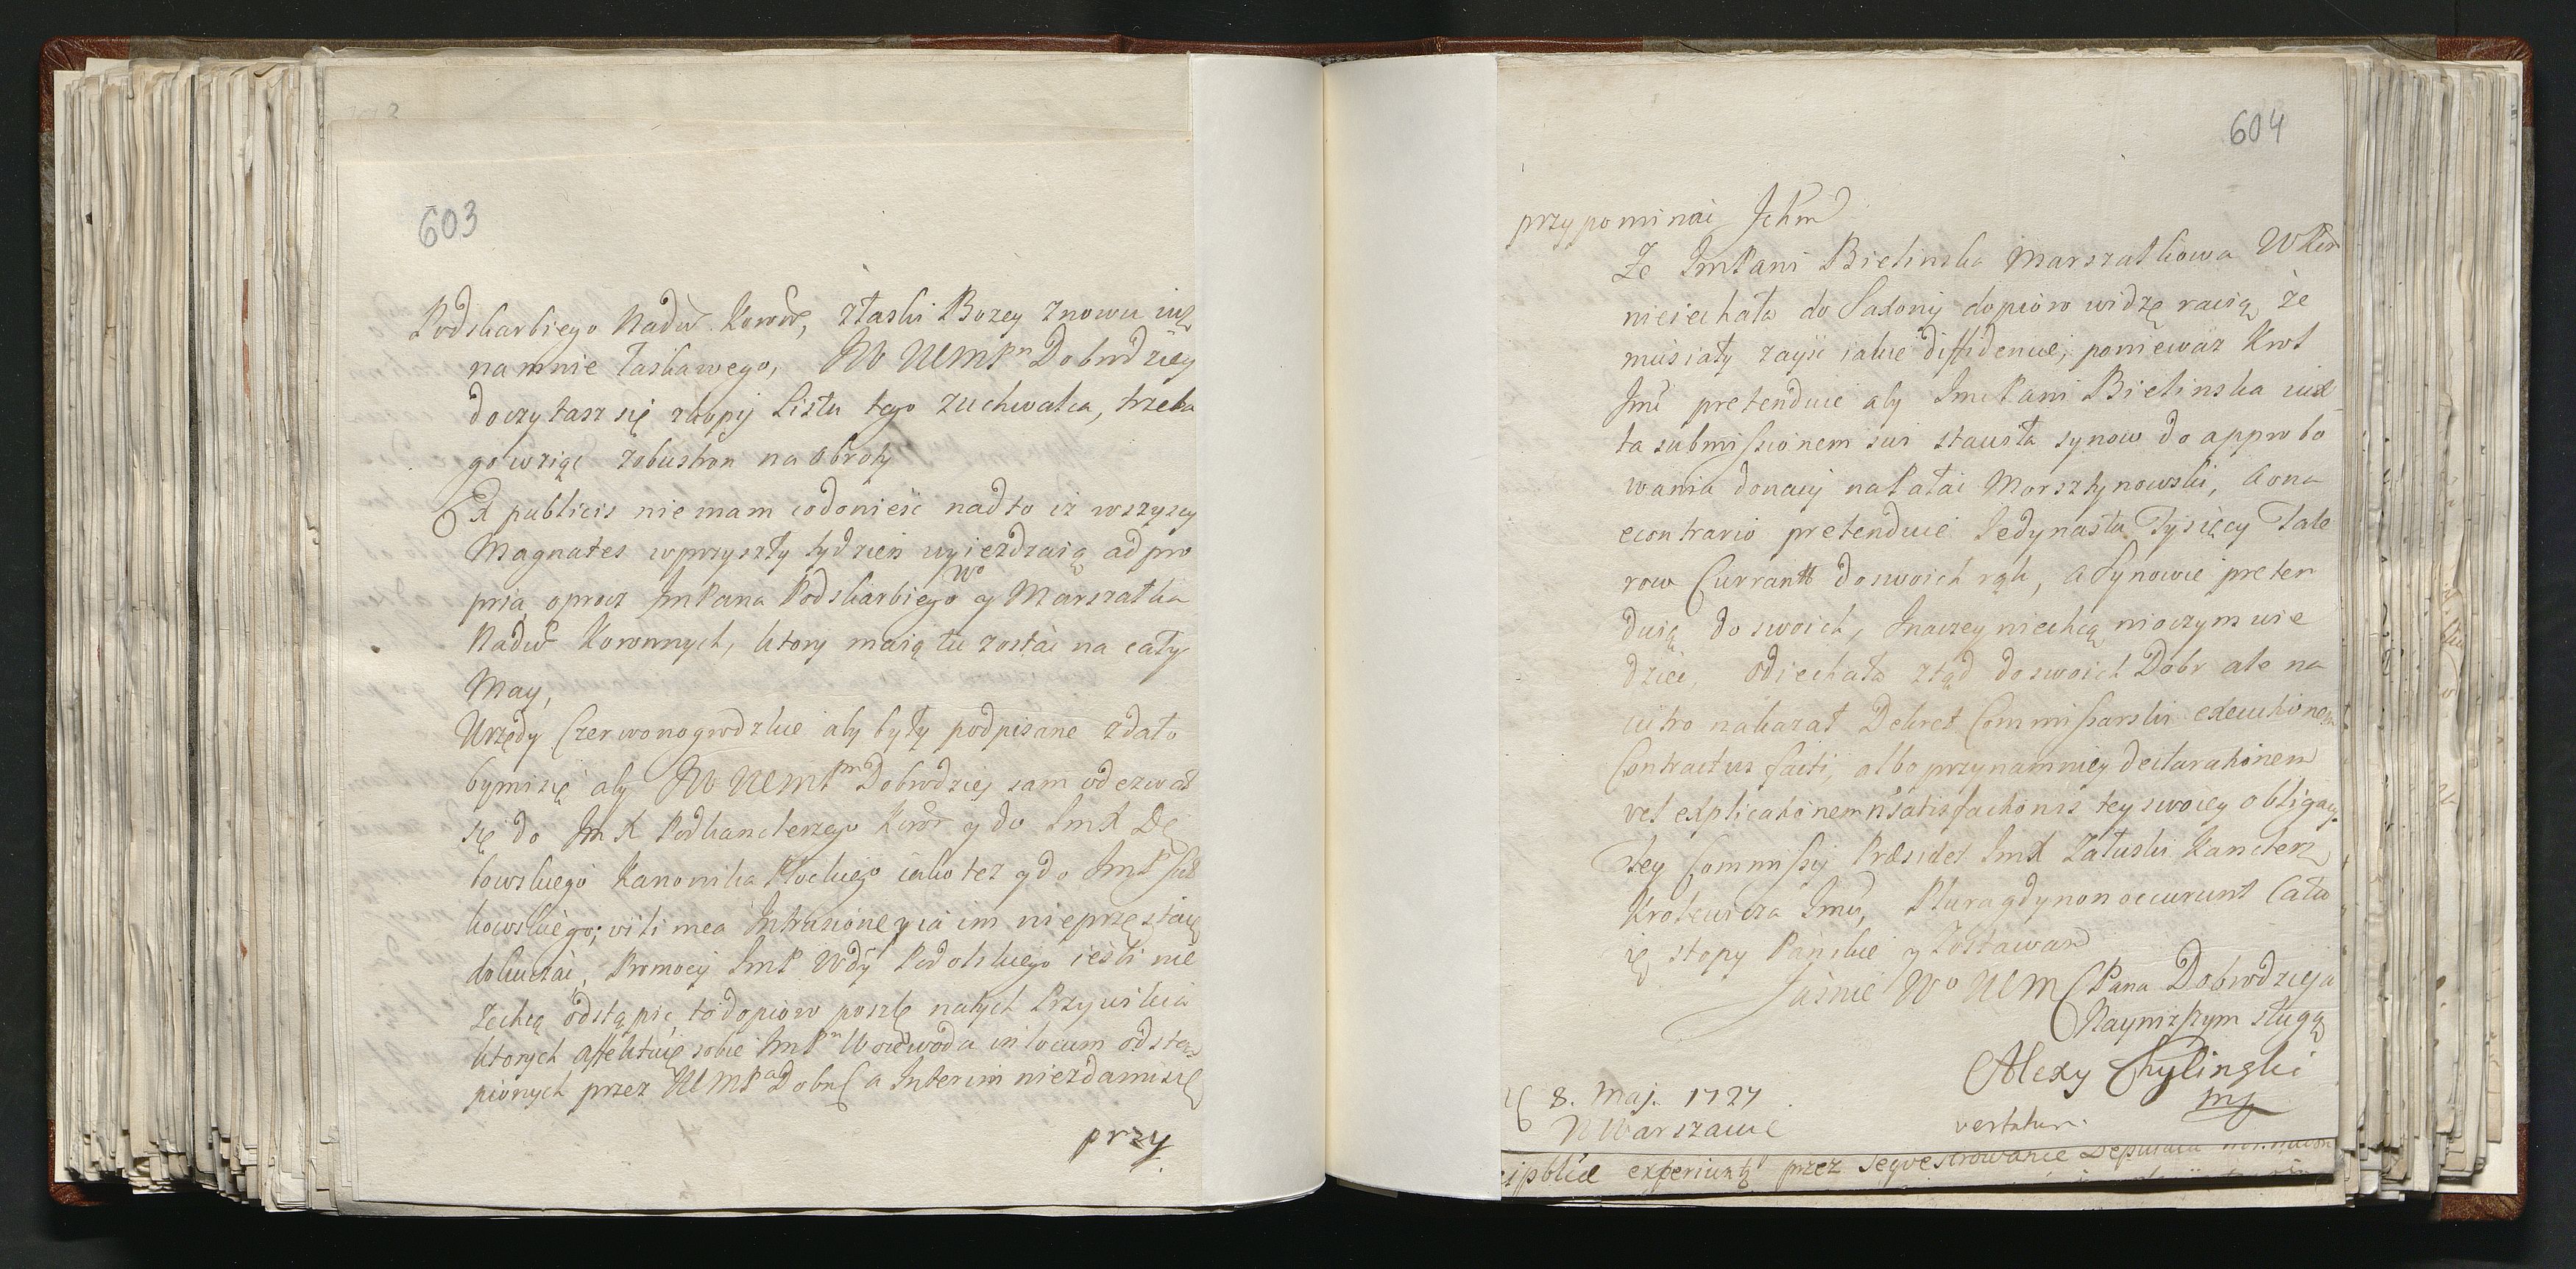 603
Podskarbiego Nadw. Koron, złaski Bozey znowu iuz
na mnie łaskawego, JW WMPn Dobrodziey
doczytasz się zkopij Listu tego zuchwalca, trzeba
go wziąć zobustron na obroty
Ex publicis nie mam co donieść nadto iz wszyscy
Magnates wprzyszły tydzien wyiezdzaią ad pro
pria oprocz JmPana Podskarbiego wo y Marszałka
Nadw Koronnych, ktory maią tu zostać na cały
May,
Urzędy Czerwonogrodzkie aby były podpisane zdało
bymisię aby JW WMPn Dobrodziej sam odezwał
się do Jm X Podkanclerzego Koro y do Jm X Dę
bowskiego Kanonika Płockiego iako tez y do JmP
kowskiego; viti mea Intrusione y ia im nieprzestaię
dokuczać, Promocij JmP Wdy Podolskiego iesli nie
Zechcą odstąpic to dopioro poszlę na tych Przywileia
ktorych affektuie sobie JmPn Woiewoda in locum odstą
pionych przez WMPa Dobr a Interim niezdamisię
przy
604
przypominać Ichm
Ze JmPani Bielinska Marszałkowa WKor
nieiechała do Saxonij dopioro widzę racią ze
musiały zayść iakie diffidencie, poniewaz Krol
Jmć pretenduie aby JmcPani Bielinska iux
ta submissionem sui stawiła synow do approbo
wania donacij na Pałac Morsztynowski, a ona
econtrario pretenduie Iedynastu Tysięcy Tale
row Currantt doswoich rąk, a Synowie preten
duią do swoich, Inaczey niechcą nioczym wie
dziec, Odiechała ztąd doswoich Dobr ale na
iutro nakazał Dekret Commissarski executionem
Contractus facti, albo przynamniey declarationem
vel explicationem satisfactionis tey swoiey obligacij
Tey Commissij Præsidet JmX Załuski Kanclerz
Krolewicza Jmci, Plura gdy non occurunt Cału
ię stopy Panskie y Zostawam
Jaśnie Wo WM Pana Dobrodzieja
Naynizszym sługą
Alexy Chylinski
mp
8. Maj. 1727
W Warszawie
vertatur.
experiuntur przez Seqvestrowanie